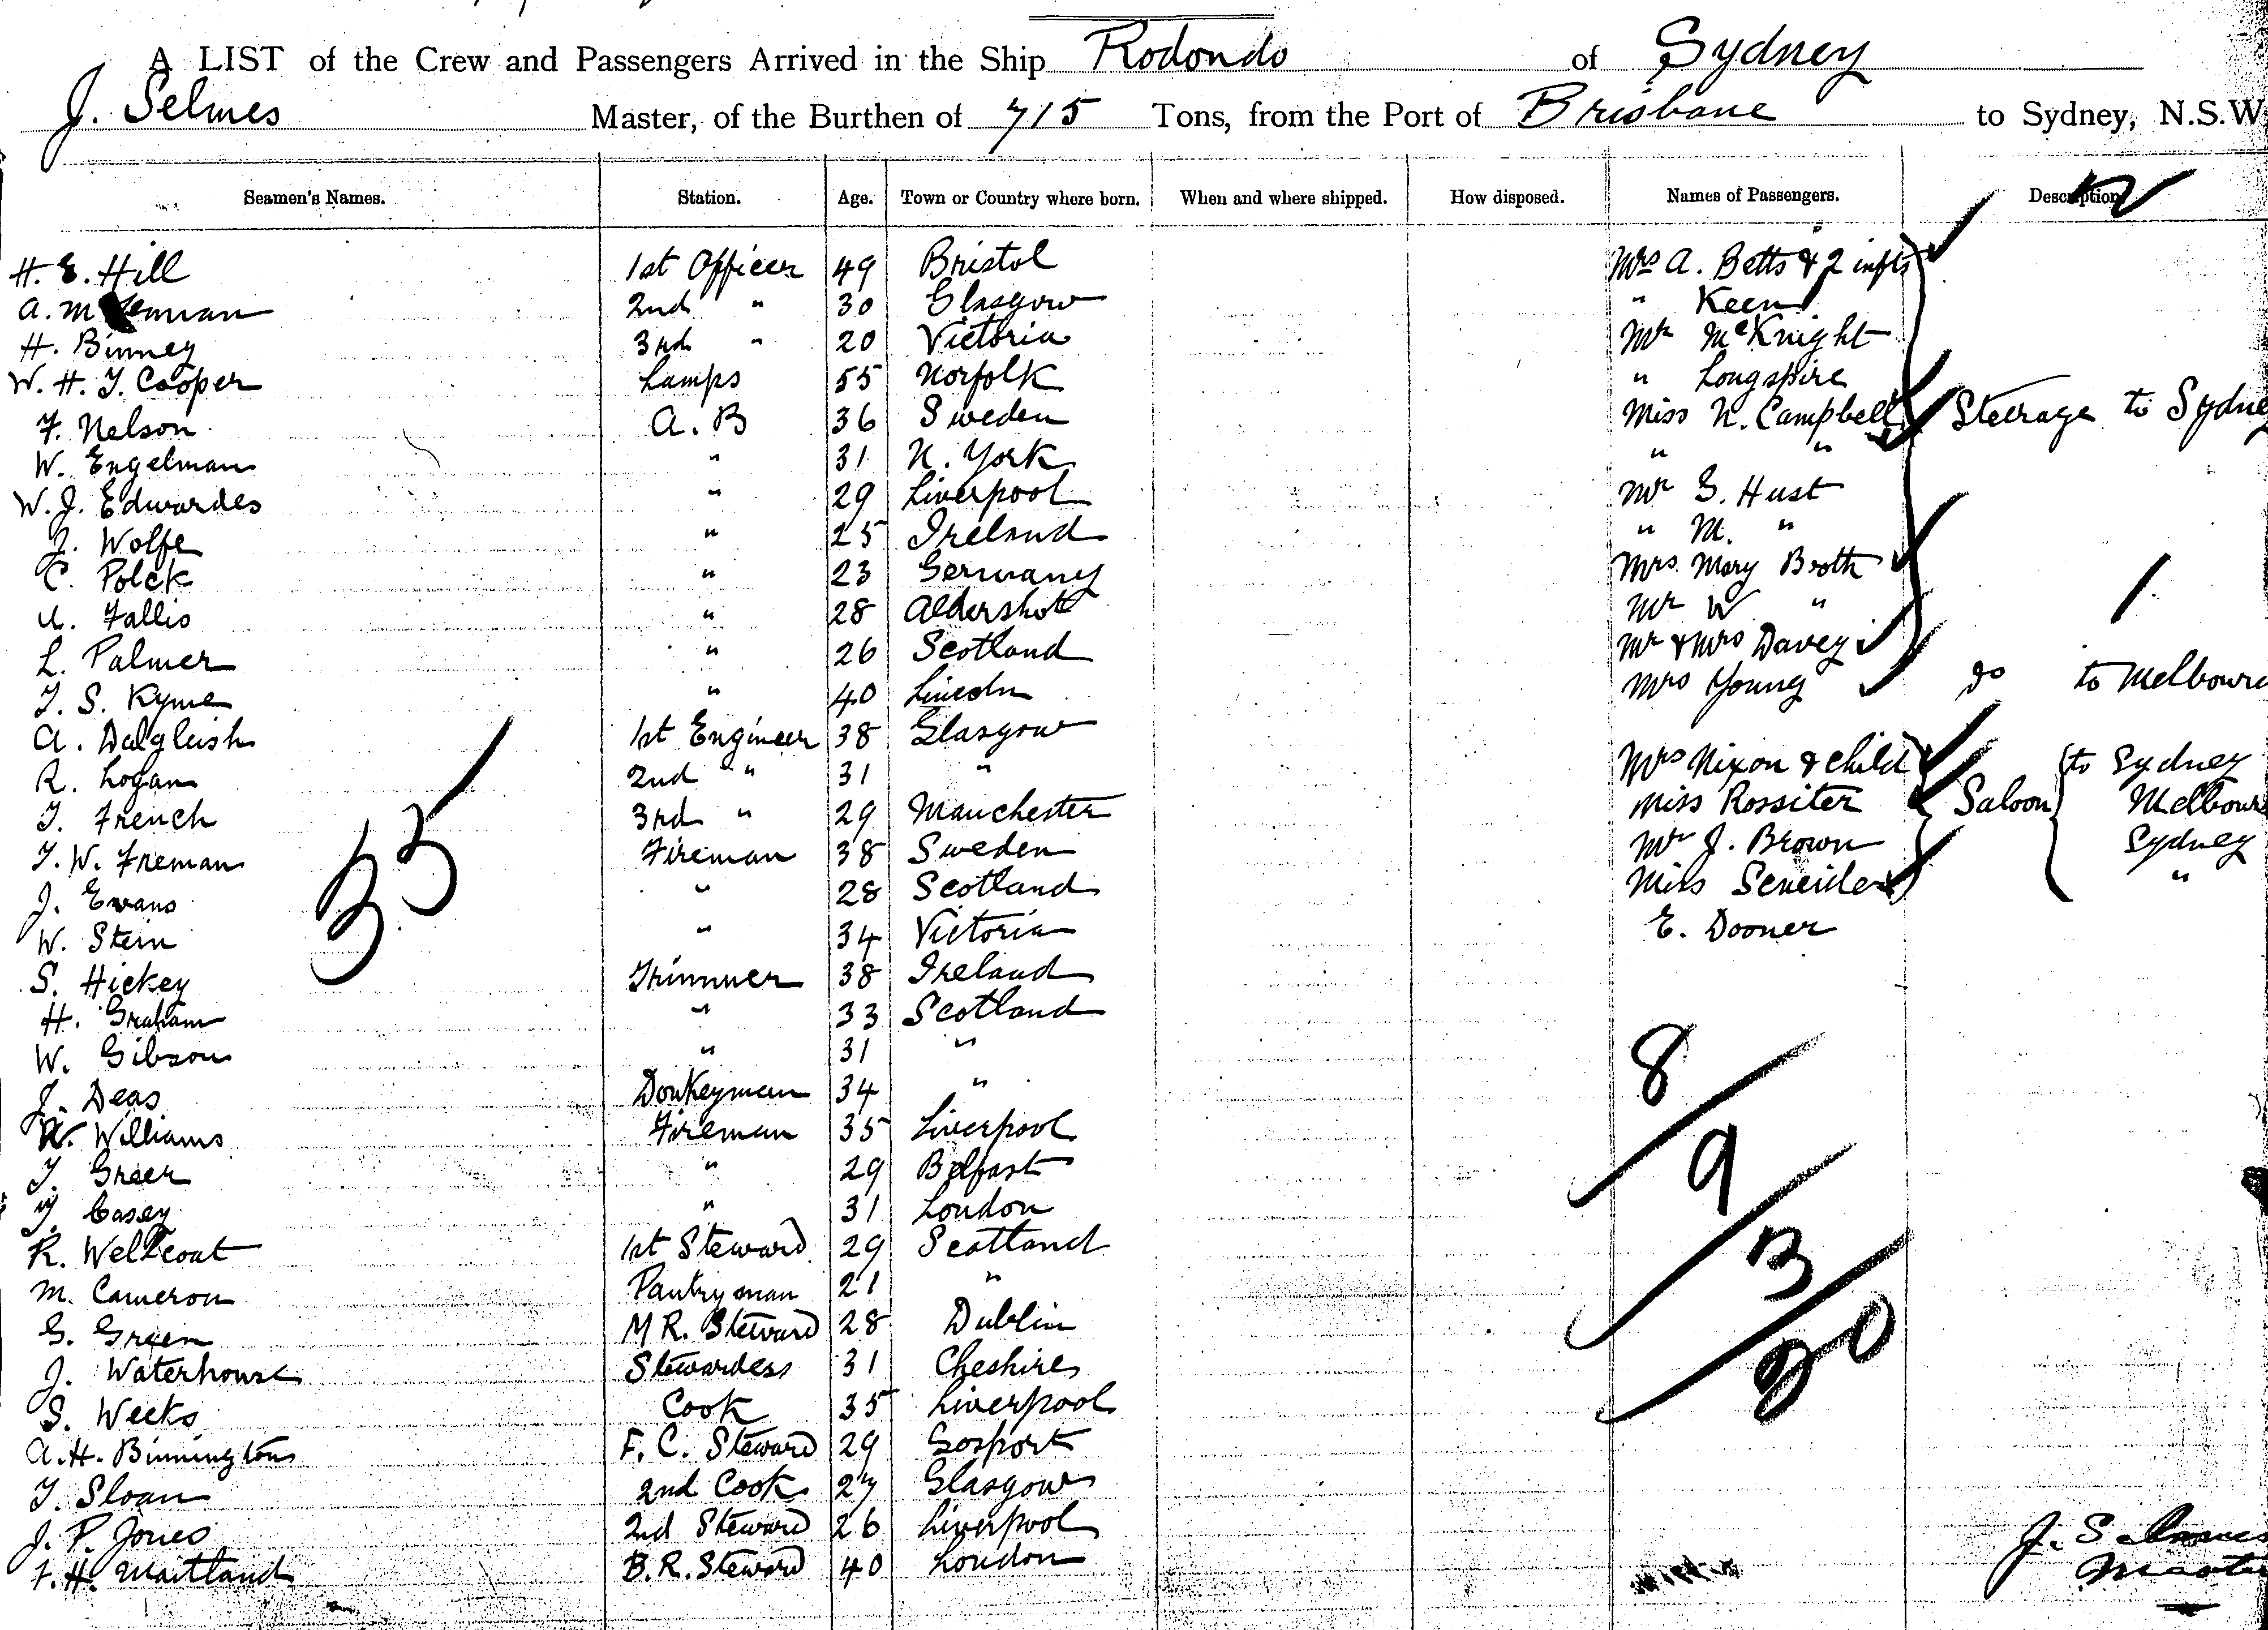 A LIST of the Crew and Passengers Arrived in the Ship Rodondo of Sydney
J. Selmes Master, of the Burthen of 715 Tons, from the Port of Brisbane to Sydney, N.S.W
Seamen's Names. Station. Age. Town or Country where born. When and where shipped. How disposed. Names of Passengers. Description
H. E. Hill 1st Officer 49 Bristol Mrs A. Betts & 2 infts
A. 2nd " 30 Glasgow " Keen
H. Binney 3rd " 20 Victoria Mr McKnight
W. H. J. Cooper Lamps 55 Norfolk " Longspire
F. Nelson A. B 36 Sweden Miss N. Campbell Steerage to Sydney
W. Engelman " 31 N. York " "
W. J. Edwardes " 29 Liverpool Mr G. Hust
J. Wolfe " 25 Ireland " M. "
C. Polck " 23 Germany Mrs Mary Booth
Fallis " 28 Aldershot Mr W "
L. Palmer " 26 Scotland Mr & Mrs Davey
T. S. Kyme " 40 Lincoln Mrs Young do to Melbourne
A. Dalgleish 1st Engineer 38 Glasgow
R. Logan 2nd " 31 " Mrs Nixon & child to Sydney
T. French 3rd " 29 Manchester Miss Rossiter Saloon Melbourne
T. W. Freman Fireman 38 Sweden Mr J. Brown Sydney
J. Evans " 28 Scotland Miss "
W. Stein " 34 Victoria E. Dooner
S. Hickey Trimmer 38 Ireland
H. Graham " 33 Scotland
W. Gibson " 31 "
J. Deas Donkeyman 34 "
W. Williams Fireman 35 Liverpool
T. Greer " 29 Belfast
T. Casey " 31 London
R. Wellcoat 1st Steward 29 Scotland
M. Cameron Pantryman 21 "
G. Green M R. Steward 28 Dublin
J. Waterhouse Stewardess 31 Cheshire
S. Weeks Cook 35 Liverpool
A. H. Binnington F. C. Steward 29 Gosport
T. Sloan 2nd Cook 27 Glasgow
J. P. Jones 2nd Steward 26 Liverpool
F. H. Maitland B. R. Steward 40 London
8
9
3
20
J. Selmes
Master